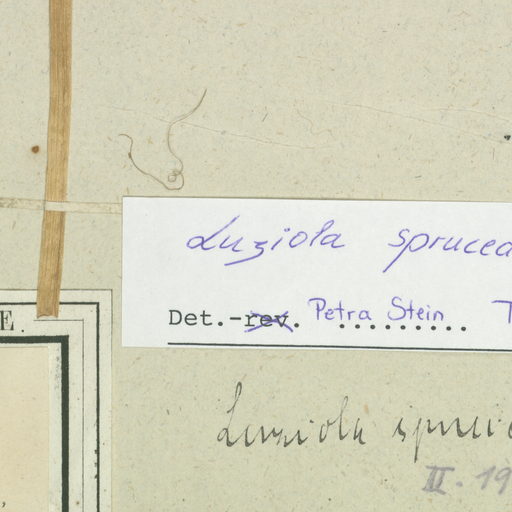 Luziola sprucea
Det.-rev. Petra Stein T
E.
Luziola sprucea
II. 19